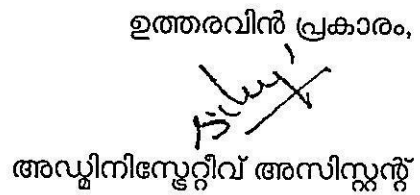 ഉത്തരവിൻ പ്രകാരം,
അഡ്മിനിസ്ട്രേറ്റീവ് അസിസ്റ്റന്റ്